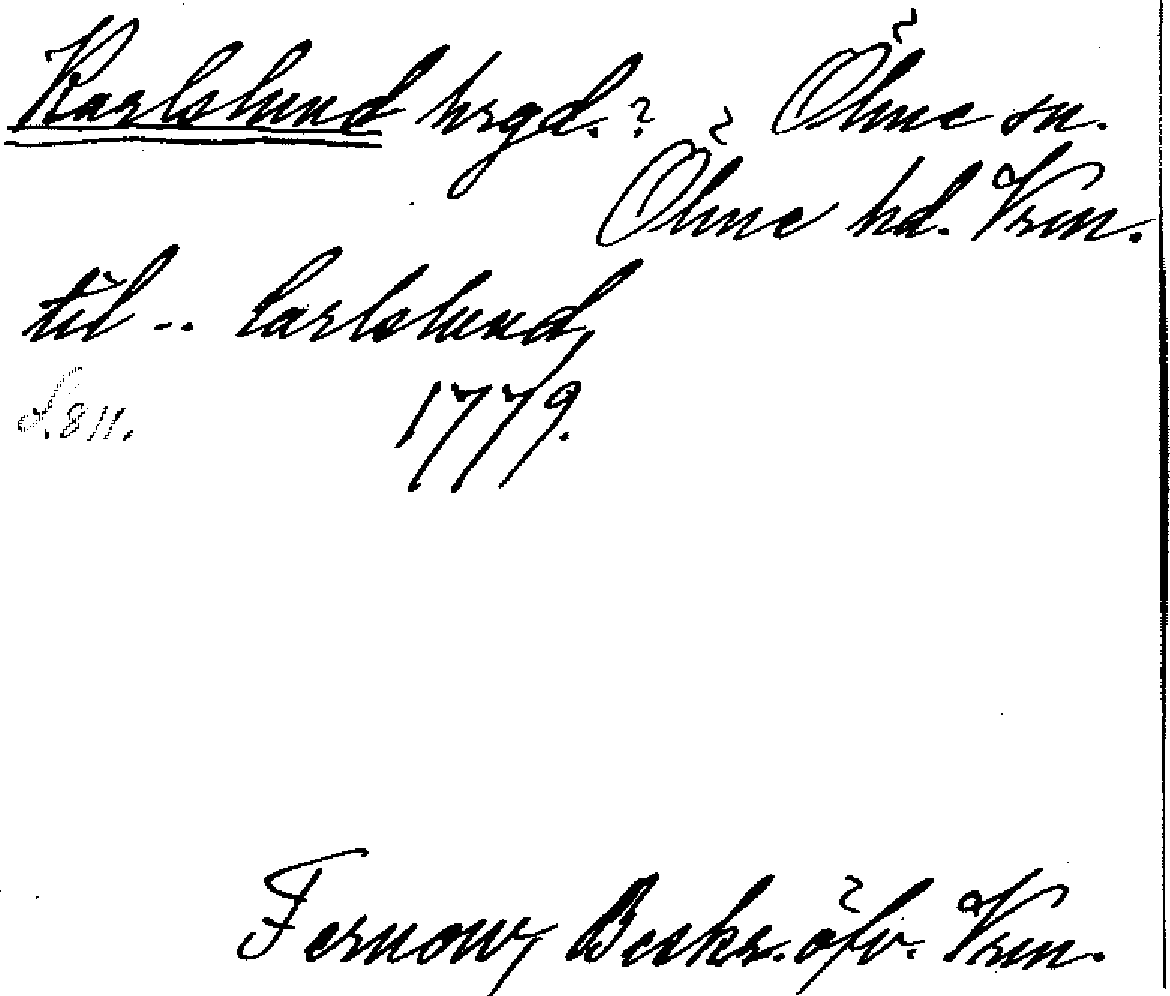 Karlslund hrgd.? Ölme sn.
Ölme hd. Vrm.
til -- Carlslund,
S. 811. 1779.
Fernow, Beskr. öfv. Vrm.